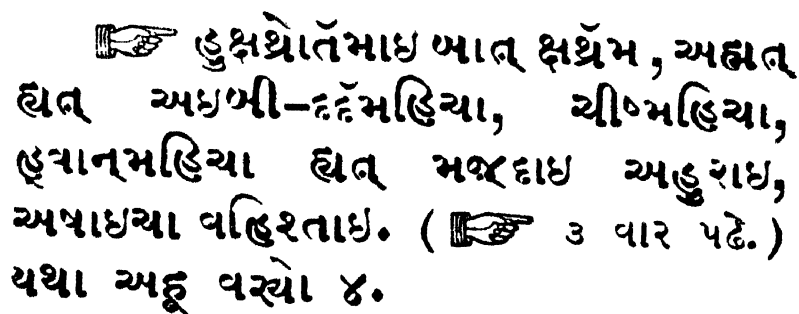 ☞ હુક્ષથ્રોતૅમાઇ બાત્ ક્ષથ્રૅમ, અહ્મત્
હ્યત્ અઇબી-દદૅમહિચા, ચીષ્મહિચા,
હ્વાન્મહિચા હ્યત્ મજદાઇ અહુરાઇ,
અષાઇચા વહિશ્તાઇ. (☞ ૩ વાર પઢે.)
યથા અહૂ વઇર્યો ૪.